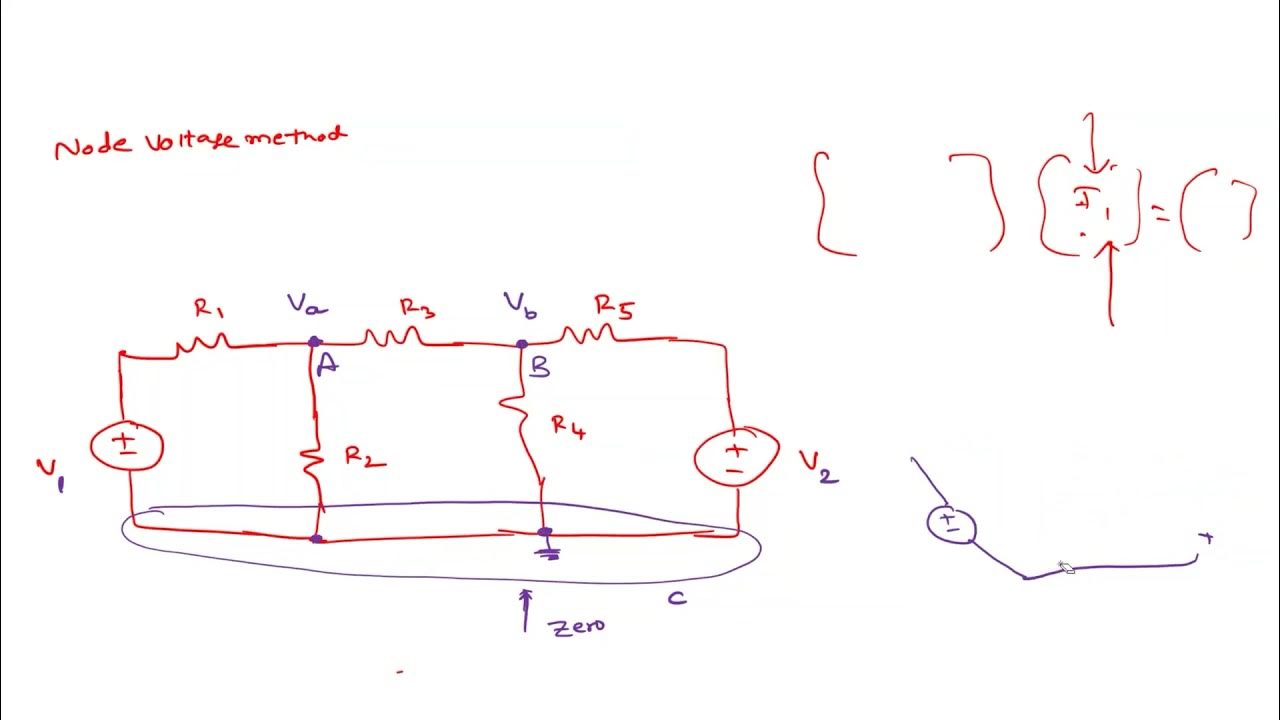 Node Voltage method
[ ] [ I1 ] = [ ]
R1 Va R3 Vb R5
A B
V1 + - R2 R4 + - V2
+ -
+
C
Zero